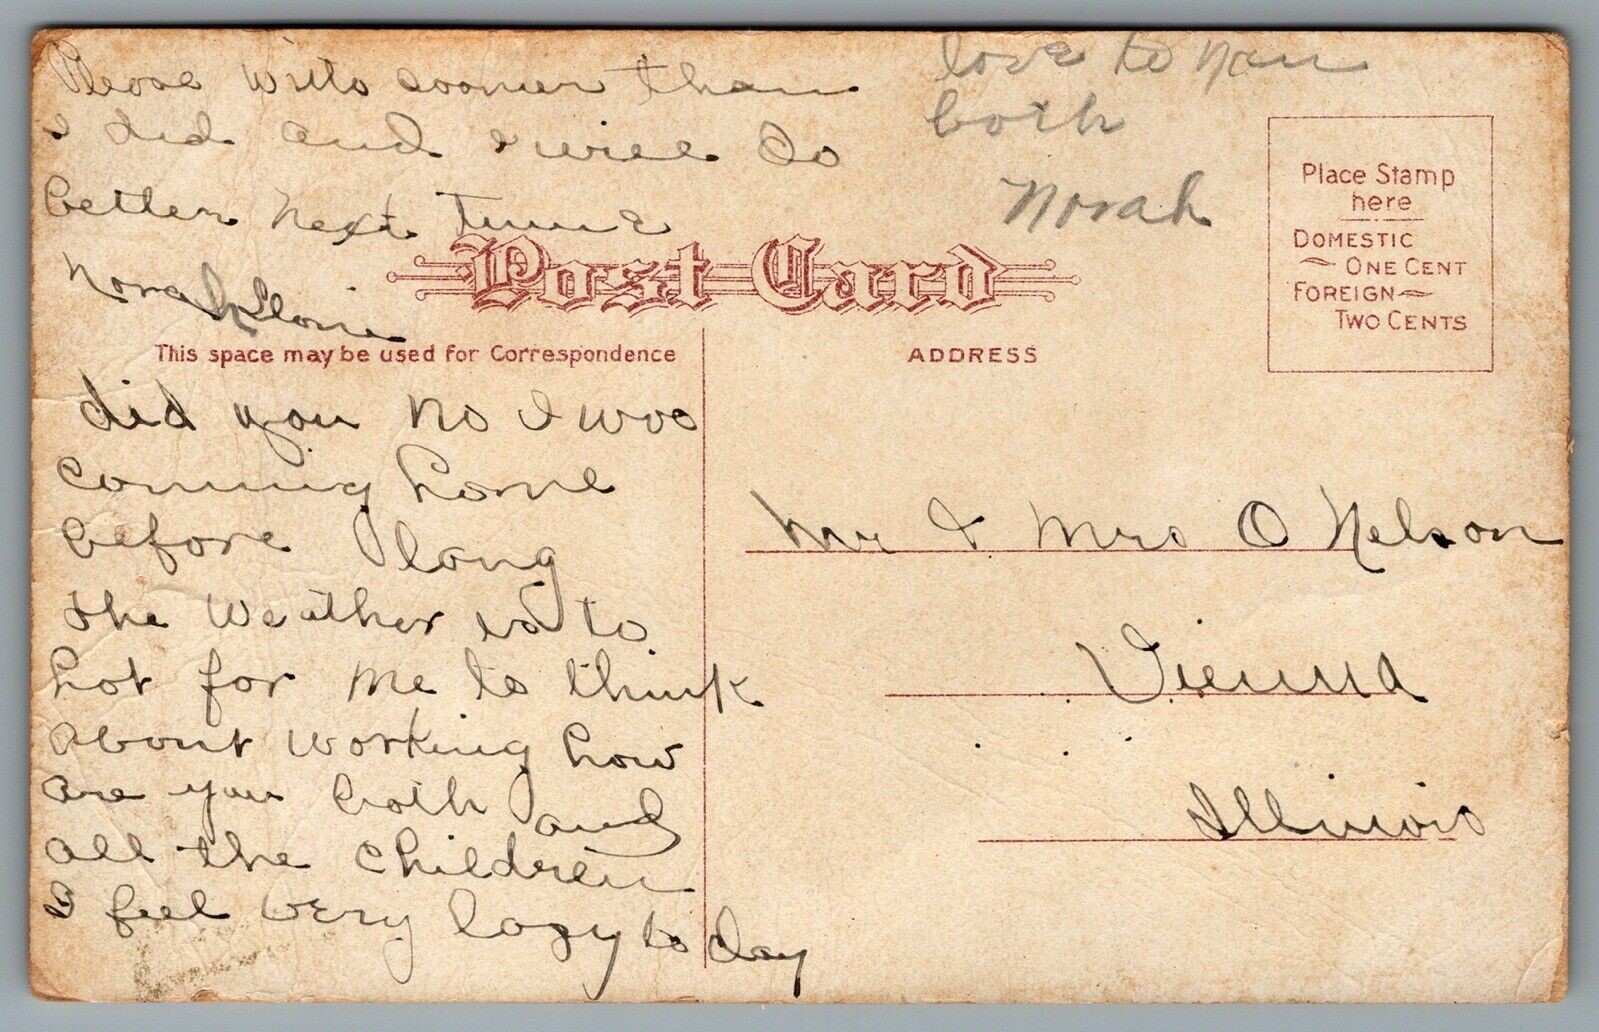 Please write sooner than
I did and I will do
better next time
Norah
love to you
both
Norah
Post Card
Place Stamp
here
DOMESTIC
ONE CENT
FOREIGN
TWO CENTS
This space may be used for Correspondence
ADDRESS
did you no I was
coming home
before long
the weather is to
hot for me to think
about working how
are you both and
all the children
I feel very lazy to day
Mr & Mrs O Nelson
Vienna
Illinois